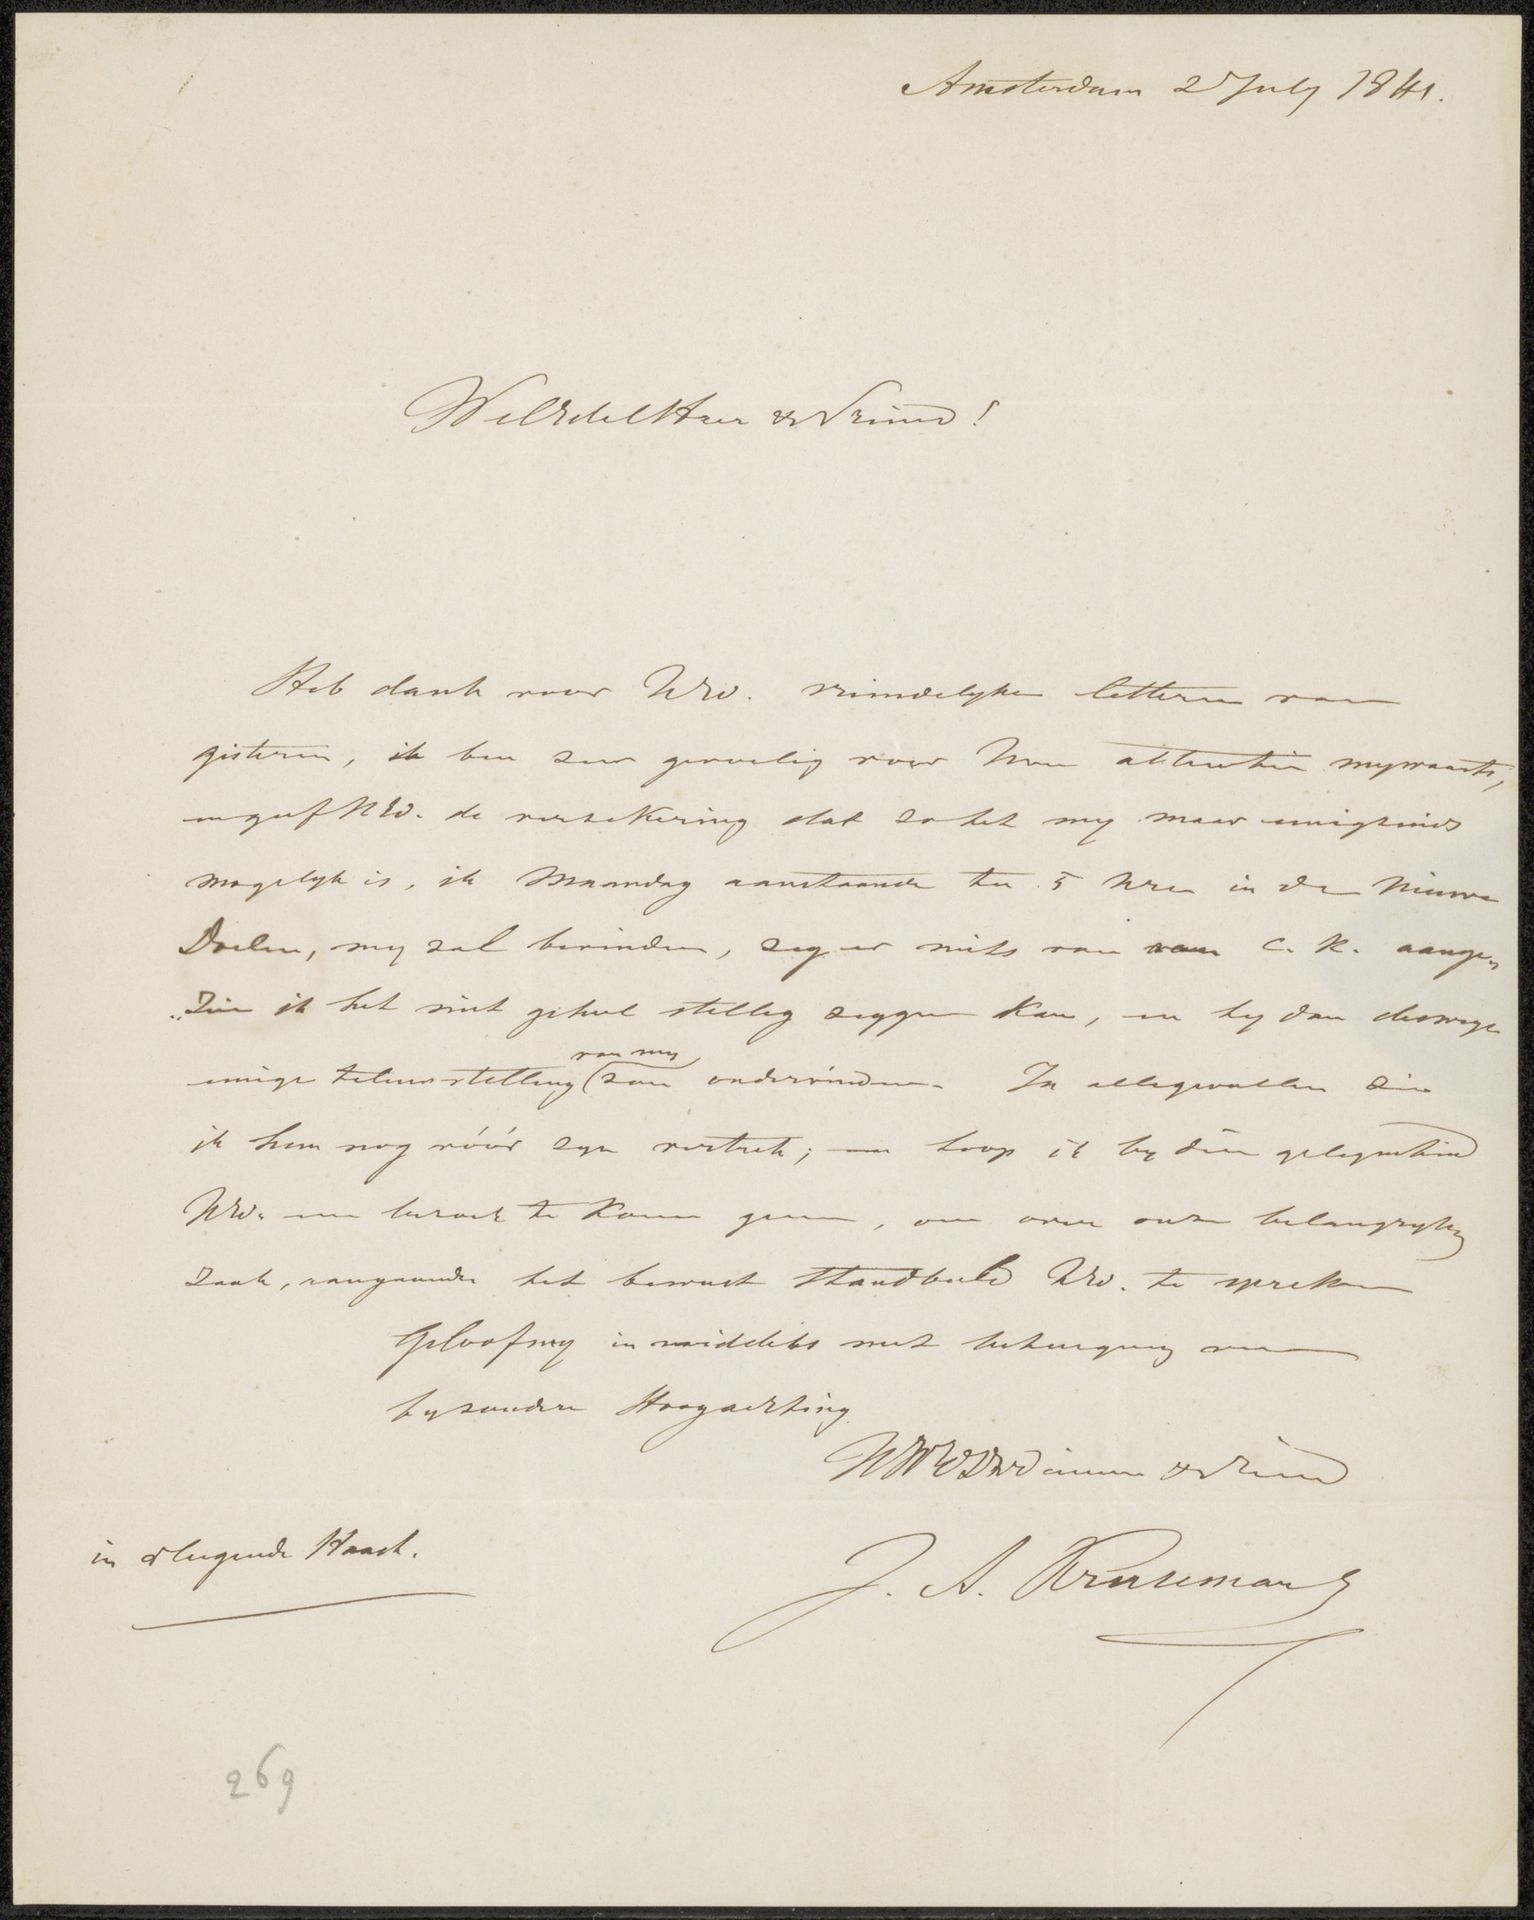 Amsterdam 2 July 1841.
WelEdelHeer & Vriend!
Heb dank voor UEd. vriendelyke letteren van
gisteren, ik ben zeer gevoelig voor Uwe attentie mywaarts,
en geef UEd. de verzekering dat zo het my maar eenigzinds
mogelyk is, ik Maandag aanstaande ten 5 Ure in de Nieuwe
Doelen, my zal bevinden, zeg er niets van aan C. K. aange-
„zien ik het niet geheel stellig zeggen kan, en hy dan deswege
eenige teleurstelling (van my) zou ondervinden. In allegevallen zie
ik hem nog vóór zyn vertrek; en hoop ik by dien gelegenheid
UEd. een bezoek te komen geven, om over onze belangryke
zaak, aangaande het bewust Standbeeld UEd. te spreken
Geloof my inmiddels met betuiging van
byzondere Hoogachting
UWEDDWDienaar & Vriend
J. A. Kruseman
in vliegende Haast.
269